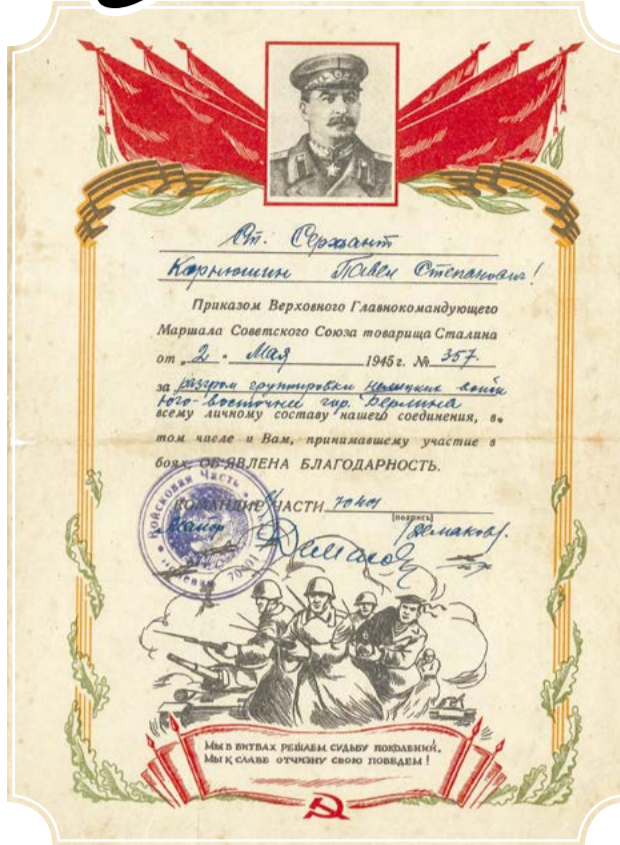 Ст. Сержант
Корнюшин Павел Степанович!
Приказом Верховного Главнокомандующего
Маршала Советского Союза товарища Сталина
от „2" Мая 1945 г. № 357.
за разгром группировки немецких войск
юго-восточнее гор. Берлина
всему личному составу нашего соединения, в
том числе и Вам, принимавшему участие в
боях, ОБ'ЯВЛЕНА БЛАГОДАРНОСТЬ.
КОМАНДИР ЧАСТИ 70401
[подпись]
Майор
Войсковая Часть
Полевая 70401
МЫ В БИТВАХ РЕШАЕМ СУДЬБУ ПОКОЛЕНИЙ,
МЫ К СЛАВЕ ОТЧИЗНУ СВОЮ ПОВЕДЕМ!